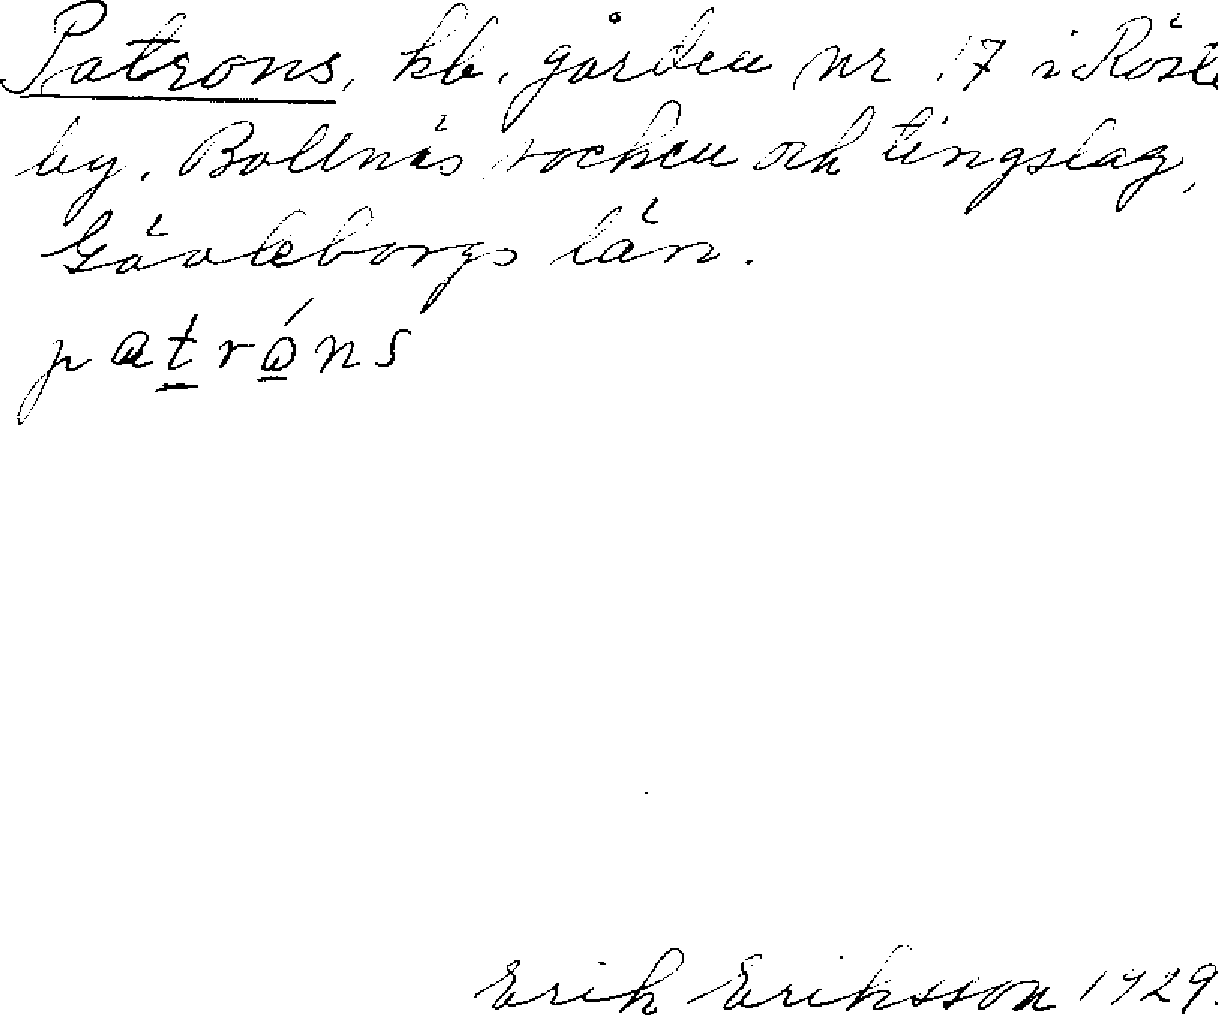 Patrons, hb. gården nr 17 i Röste
by, Bollnäs socken och tingslag,
Gävleborgs län.
patróns
Erik Eriksson 1929.